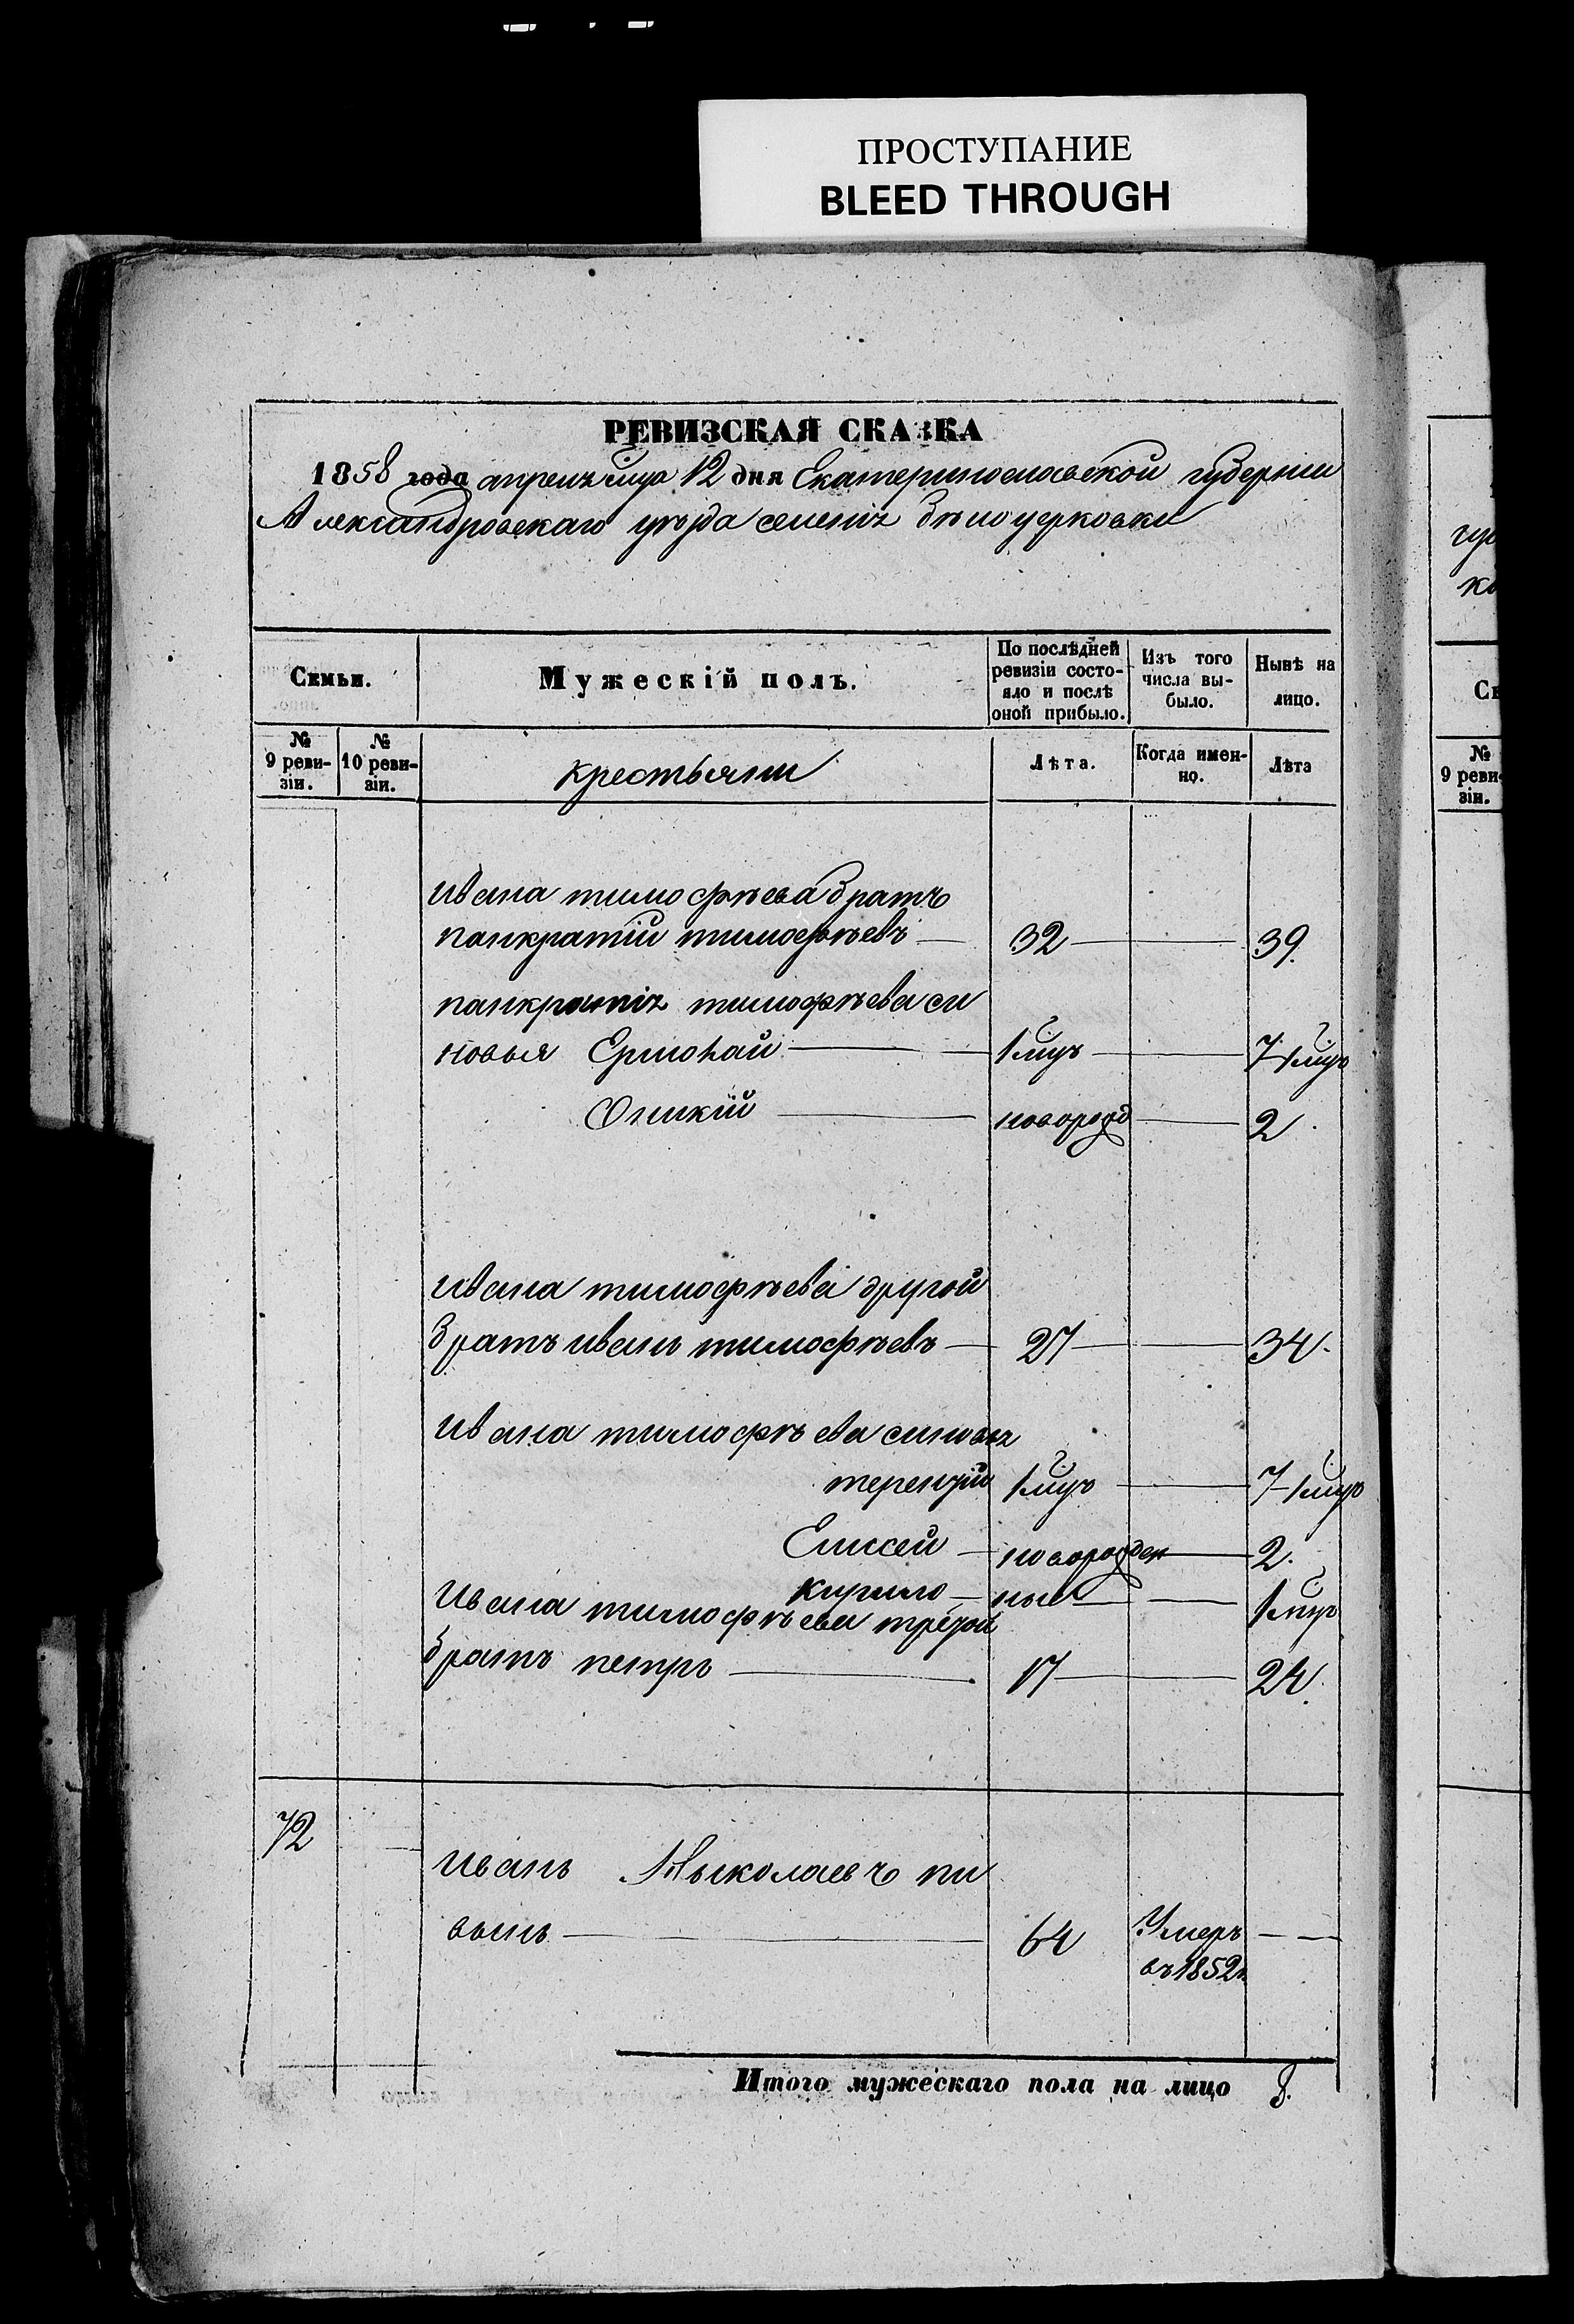 ПРОСТУПАНИЕ
BLEED THROUGH
РЕВИЗСКАЯ СКАЗКА
1858 года апреля мца 12 дня Екатеринославской губернии
Александровскаго уѣзда селенія бѣлоцерковки
Семьи.
Мужескій полъ.
По послѣдней ревизіи состояло и послѣ оной прибыло.
Изъ того числа выбыло.
Нынѣ на лицо.
№ 9 ревизіи.
№ 10 ревизіи.
крестьяни
Лѣта.
Когда именно.
Лѣта
Ивана тимофѣева братъ
панкратій тимофѣевъ 32 39
панкратія тимофѣева си
новья Ермолай 1 мцъ 7 1 мцъ
Оникій новорожд 2
Ивана тимофѣева другой
братъ иванъ тимофѣевъ 27 34
Ивана тимофѣева синовья
терентій 1 мцъ 7 1 мцъ
Елисей новорожден 2
кирило ный 1 мцъ
Ивана тимофѣева третой
братъ петръ 17 24
72
иванъ Ныколаевъ пи
вынь 64 Умеръ
въ 1852
Итого мужескаго пола на лицо 8.
№
9 реви
зіи.